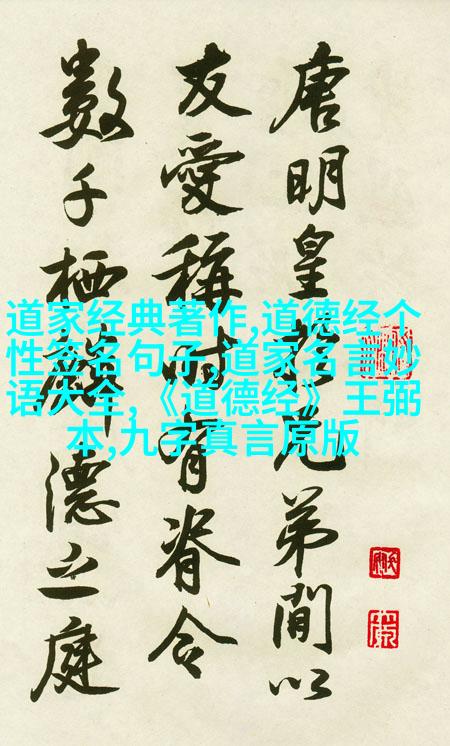 唐明皇於兄弟間以
友愛稱時有脊令
數千栖麟德之庭
道家经典著作,道德经个
性签名句子,道家名言妙
语大全,《道德经》 王弼
本,九字真言原版